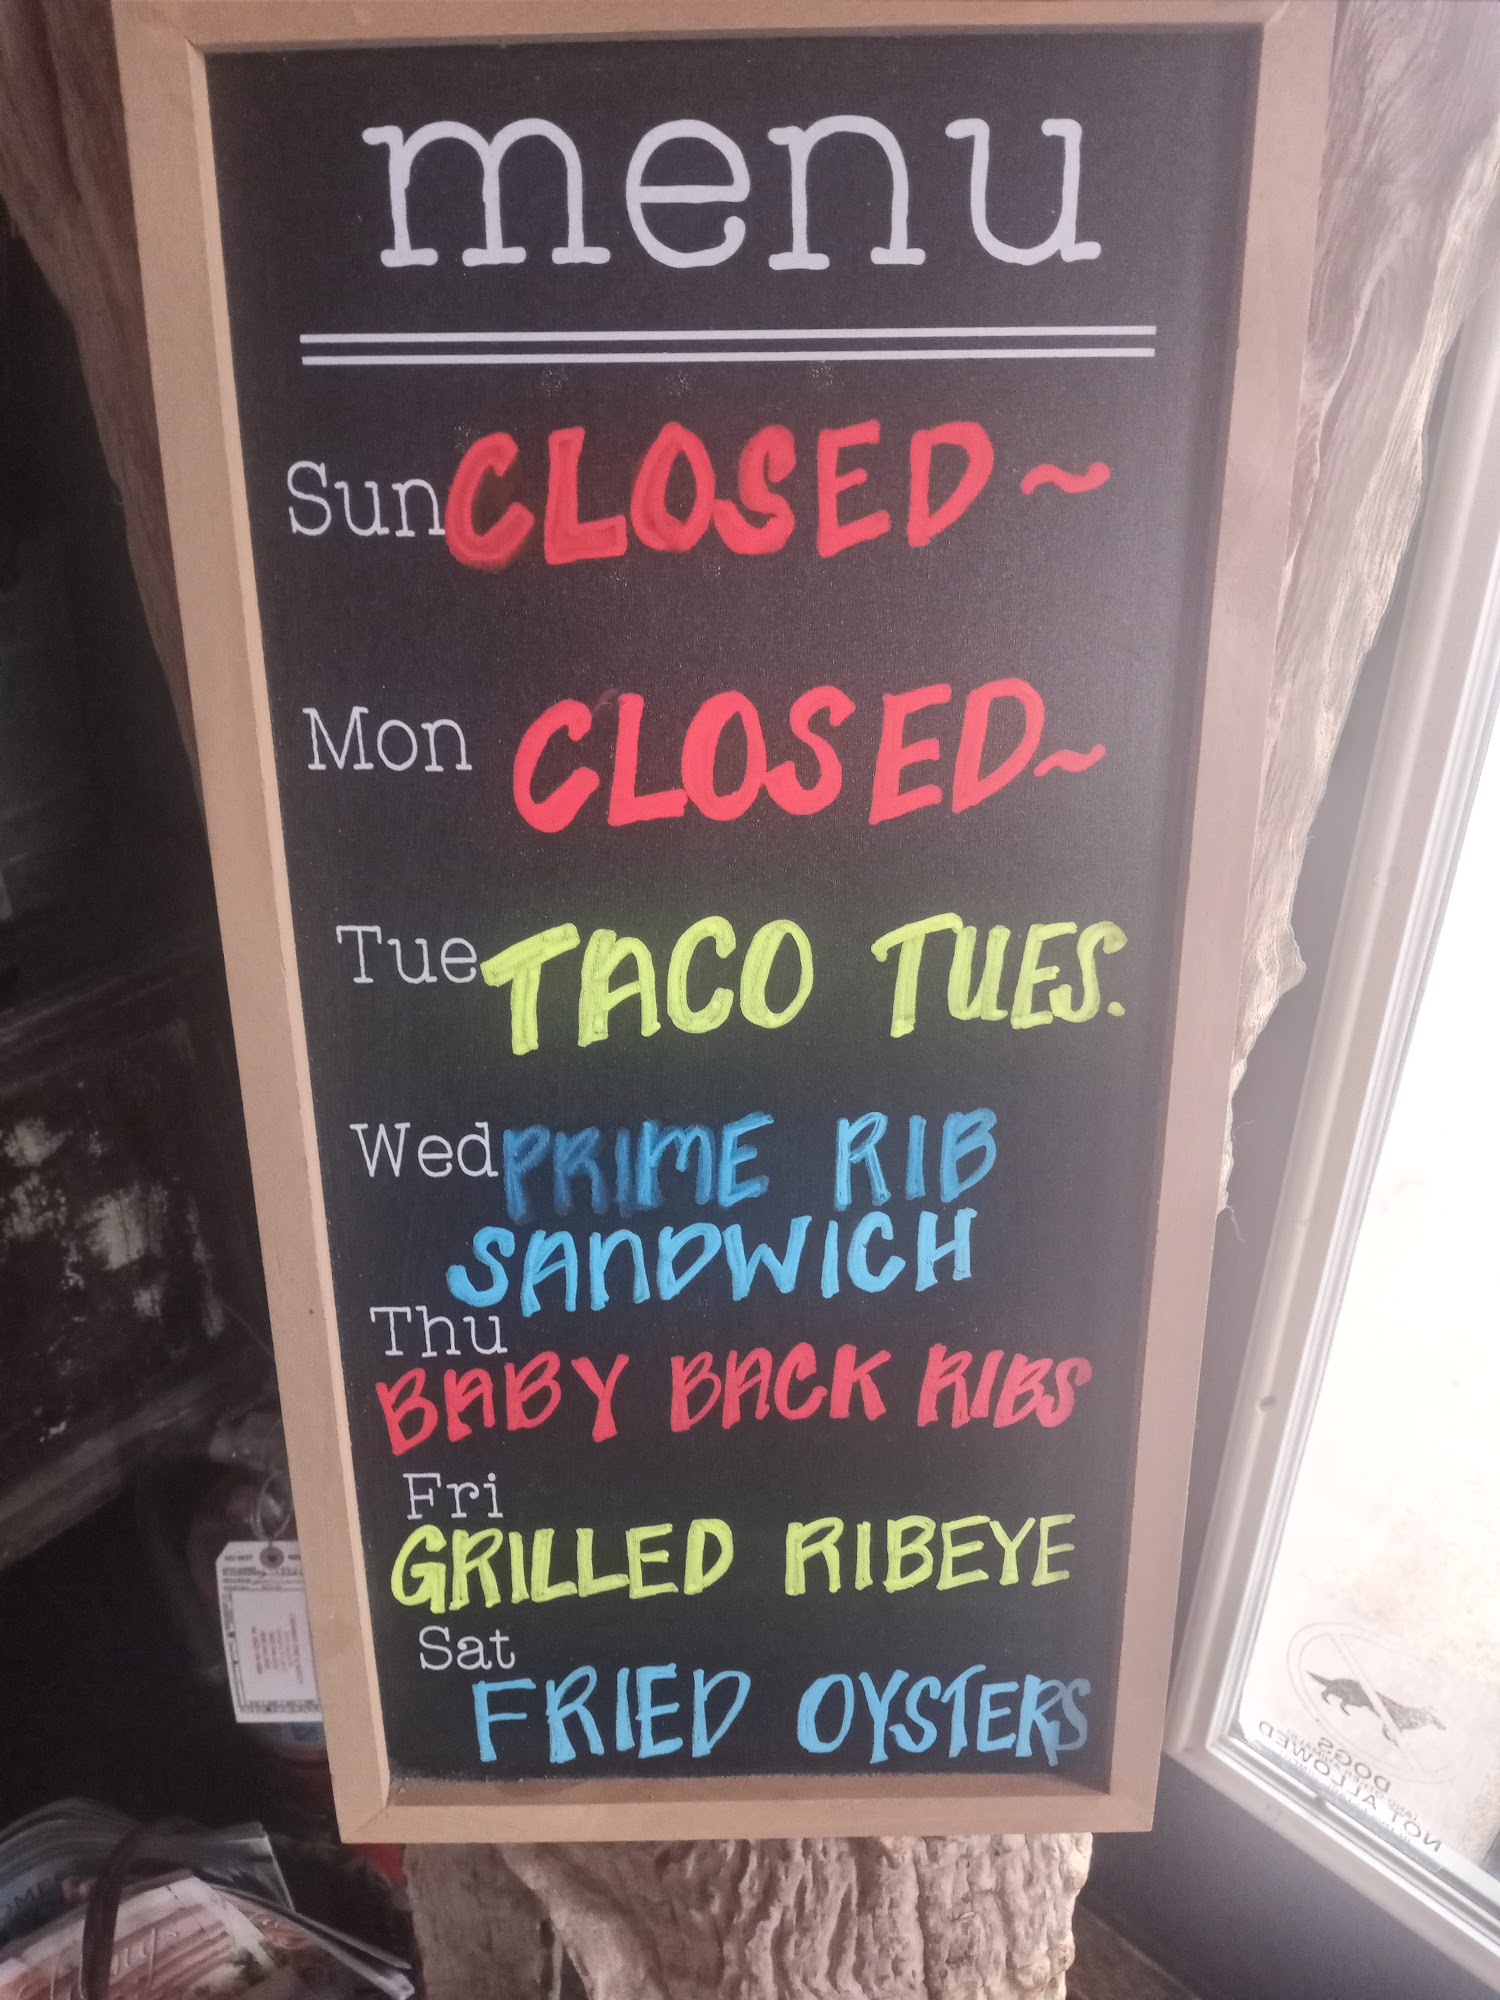 menu
Sun CLOSED~
Mon CLOSED~
Tue TACO TUES.
Wed PRIME RIB
SANDWICH
Thu
BABY BACK RIBS
Fri
GRILLED RIBEYE
Sat
FRIED OYSTERS
DOGS
NOT ALLOWED